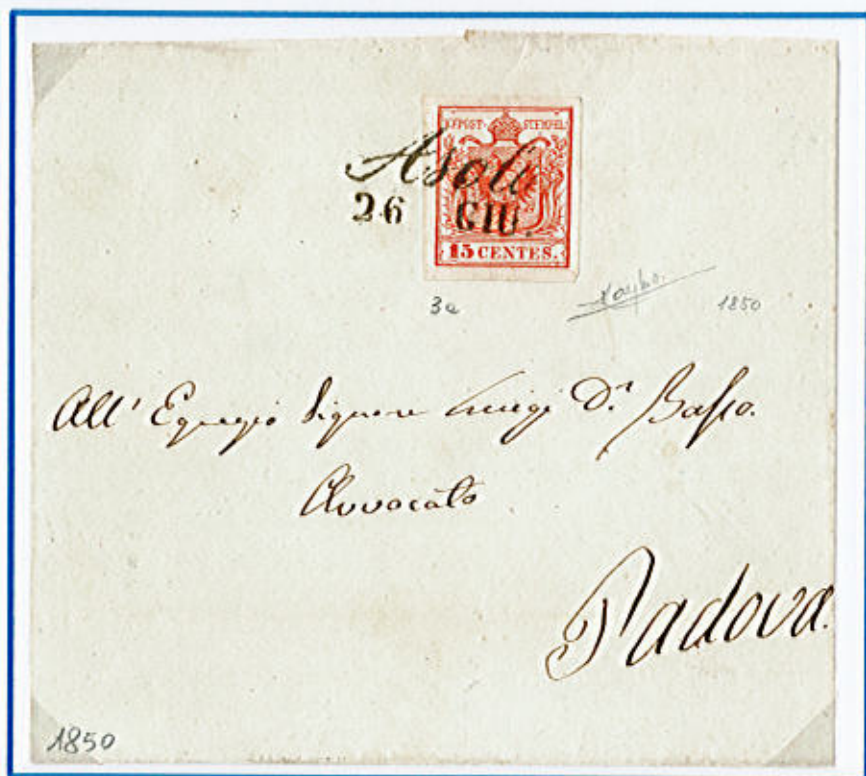 KKPOST-STEMPEL
Asolo
26 GIU.
15 CENTES.
3a
1850
All' Egregio Signore Luigi D.r Basso.
Avvocato
Padova.
1850